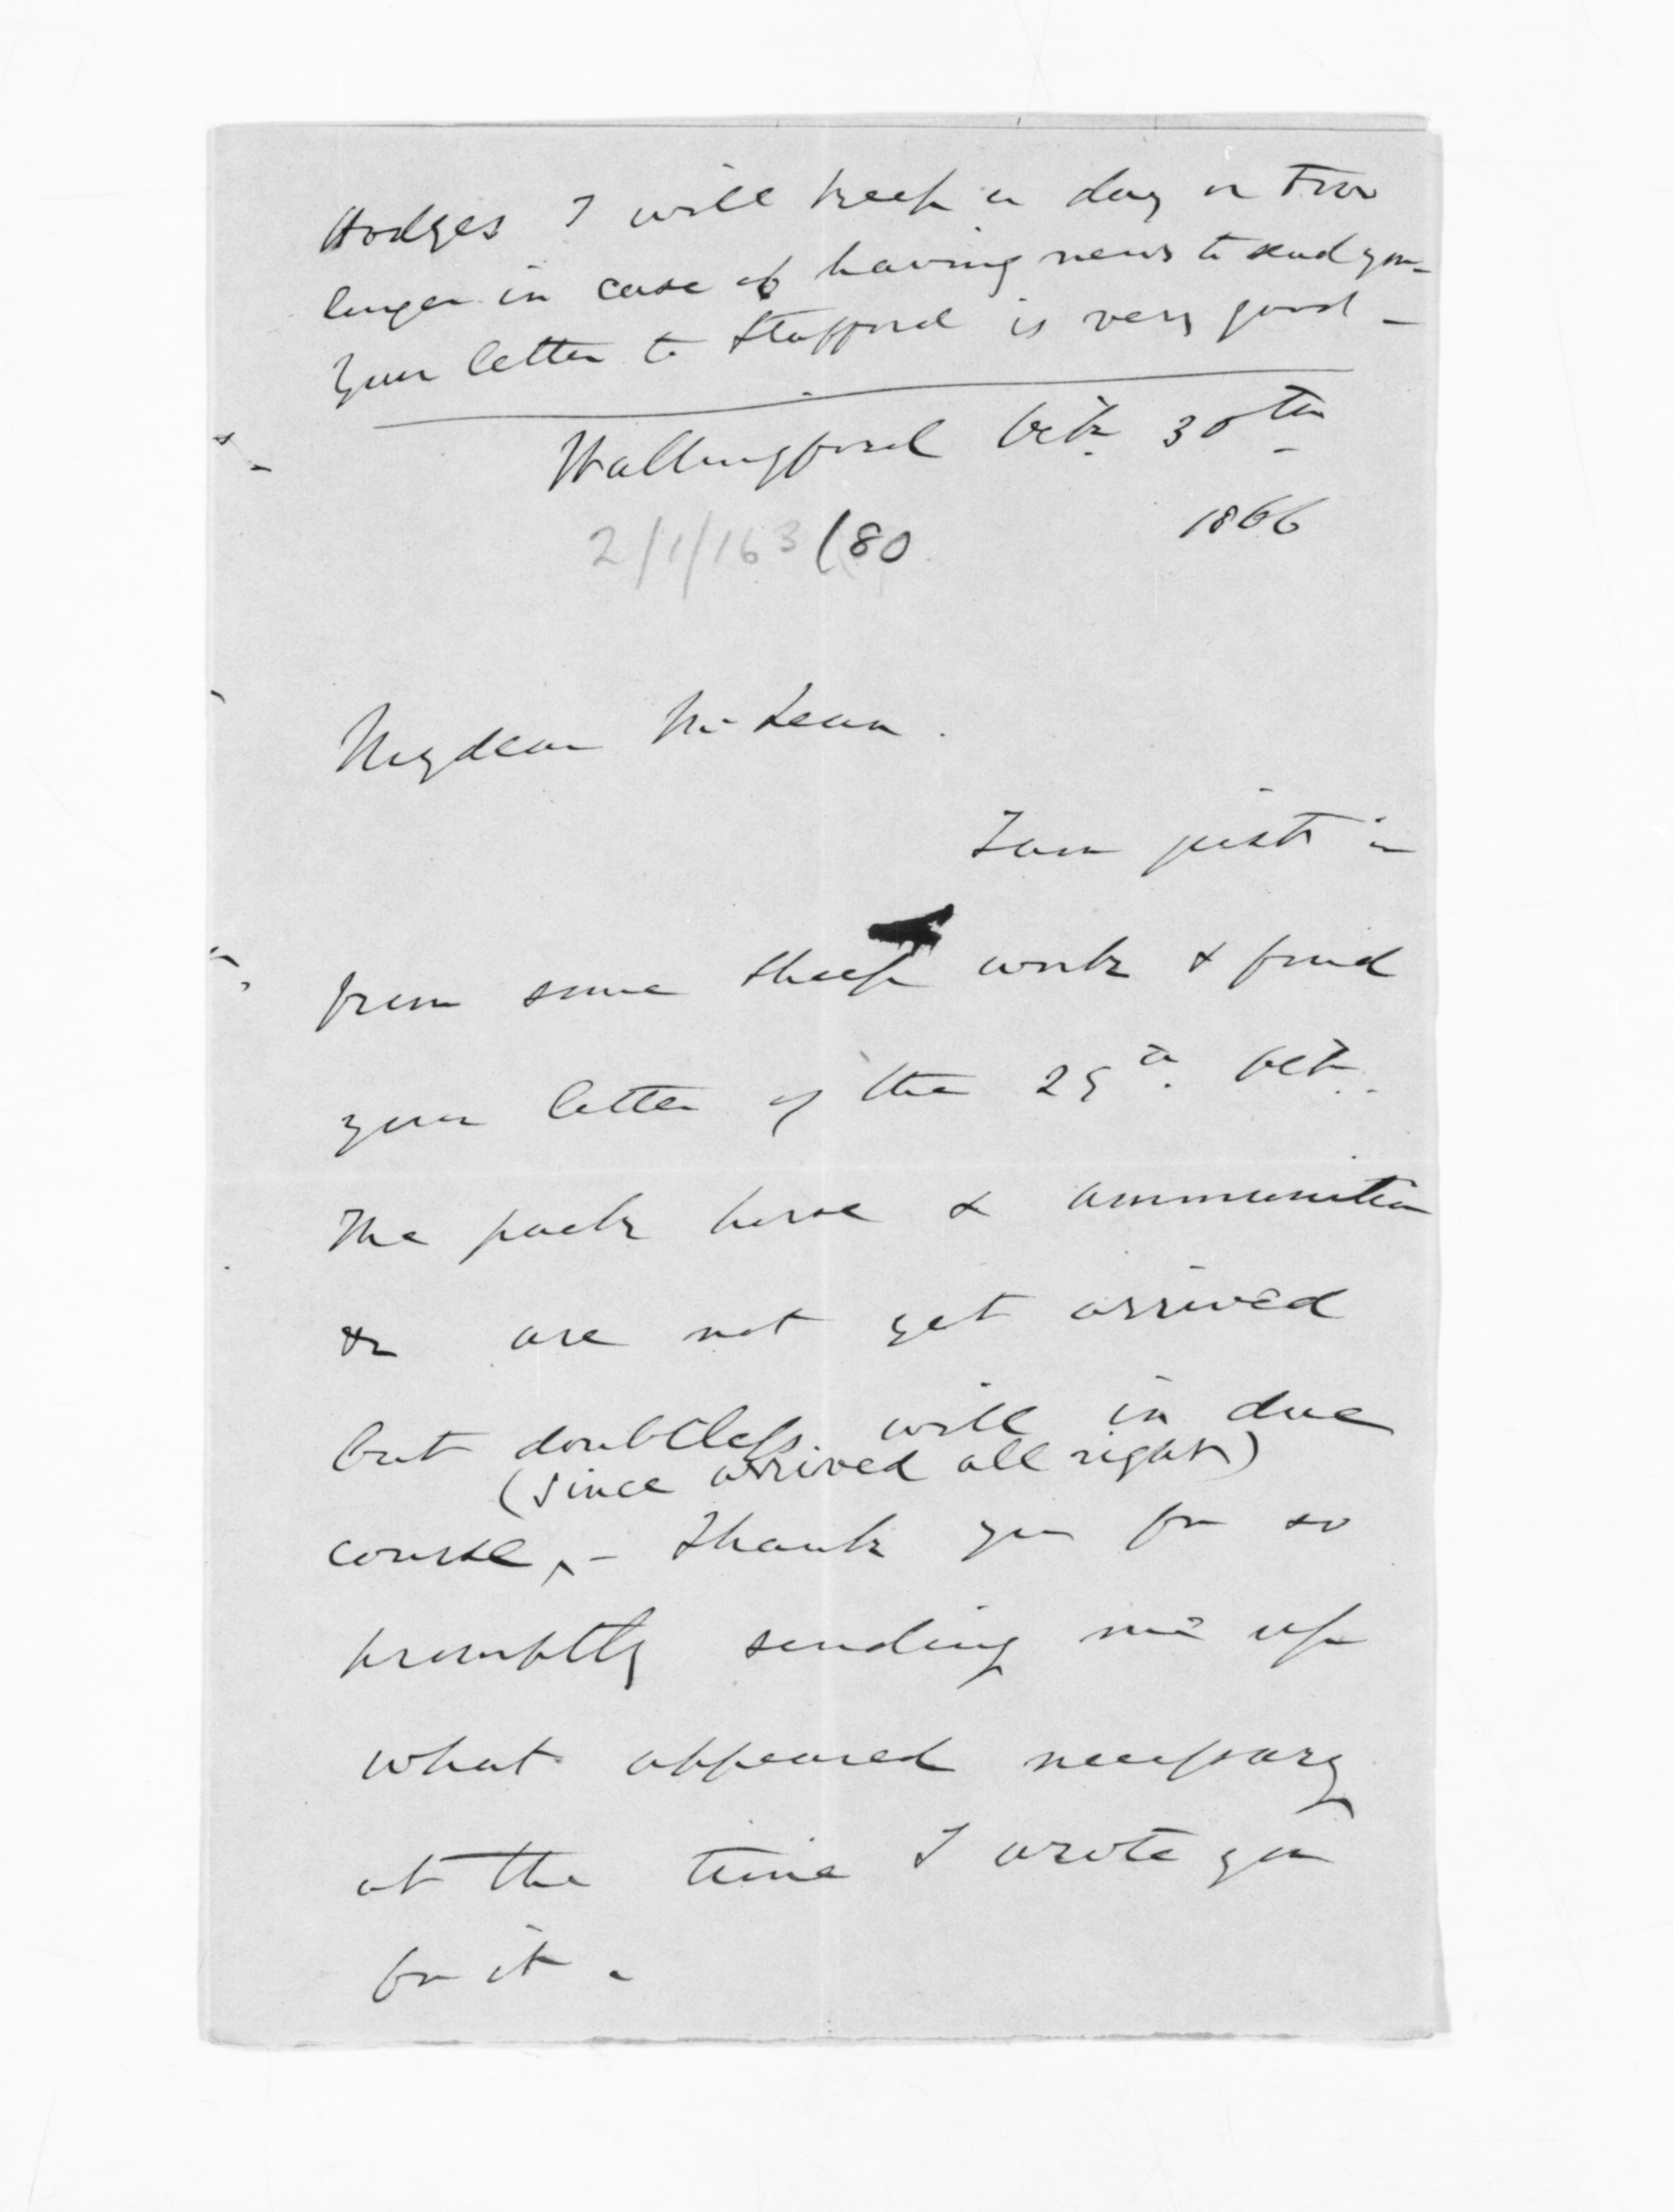 Hodges I will keep a day or two
longer in case of having news to send you -
Your letter to Stafford is very good -
Wallingford Octr. 30th
1866
2/1/163 (80
My dear McLean.
I am just in
from some sheep work & find
your letter of the 29th. Octr.
The pack horse & ammunition
&c are not yet arrived
but doubtless will in due
(since arrived all right)
course, - Thank you for so
promptly sending me up
what appeared necessary
at the time I wrote you
for it.